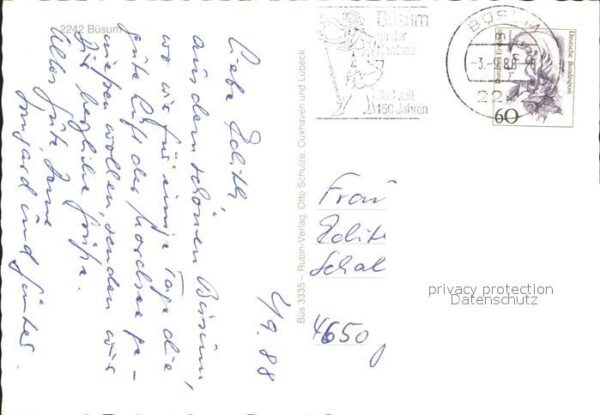 2242 Büsum
Liebe Edith,
aus dem schönen Büsum,
wo wir für einige Tage die
gute Luft der Nordsee ge-
nießen wollen, senden wir
Dir herzliche Grüße.
Alles Gute Deine
Irmgard und Günter.
2/9.88
Büs 3335 – Rubin-Verlag, Otto Schulze, Cuxhaven und Lübeck
Büsum
an der
Nordsee
150 Jahren
BÜSUM
-3.-9.88
Deutsche Bundespost
60
Frau
Edith
Schal
4650
privacy protection
Datenschutz